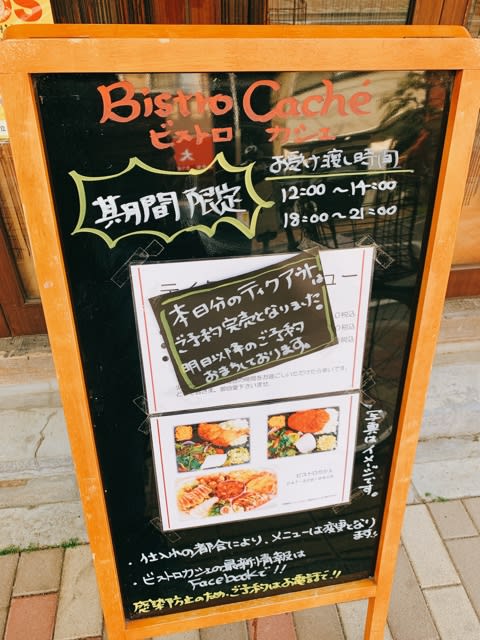 Bistro Caché
ビストロ カシェ
期間限定
お受け渡し時間
12:00 〜 14:00
18:00 〜 21:00
本日分のテイクアウトは
ご予約完売となりました。
明日以降のご予約
お待ちしております。
税込
税込
税込
写真はイメージです。
ビストロカシェ
・仕入れの都合により、メニューは変更となり
ます。
・ビストロカシェの最新情報は
Facebookで!!
感染防止のため、ご予約はお電話で!!